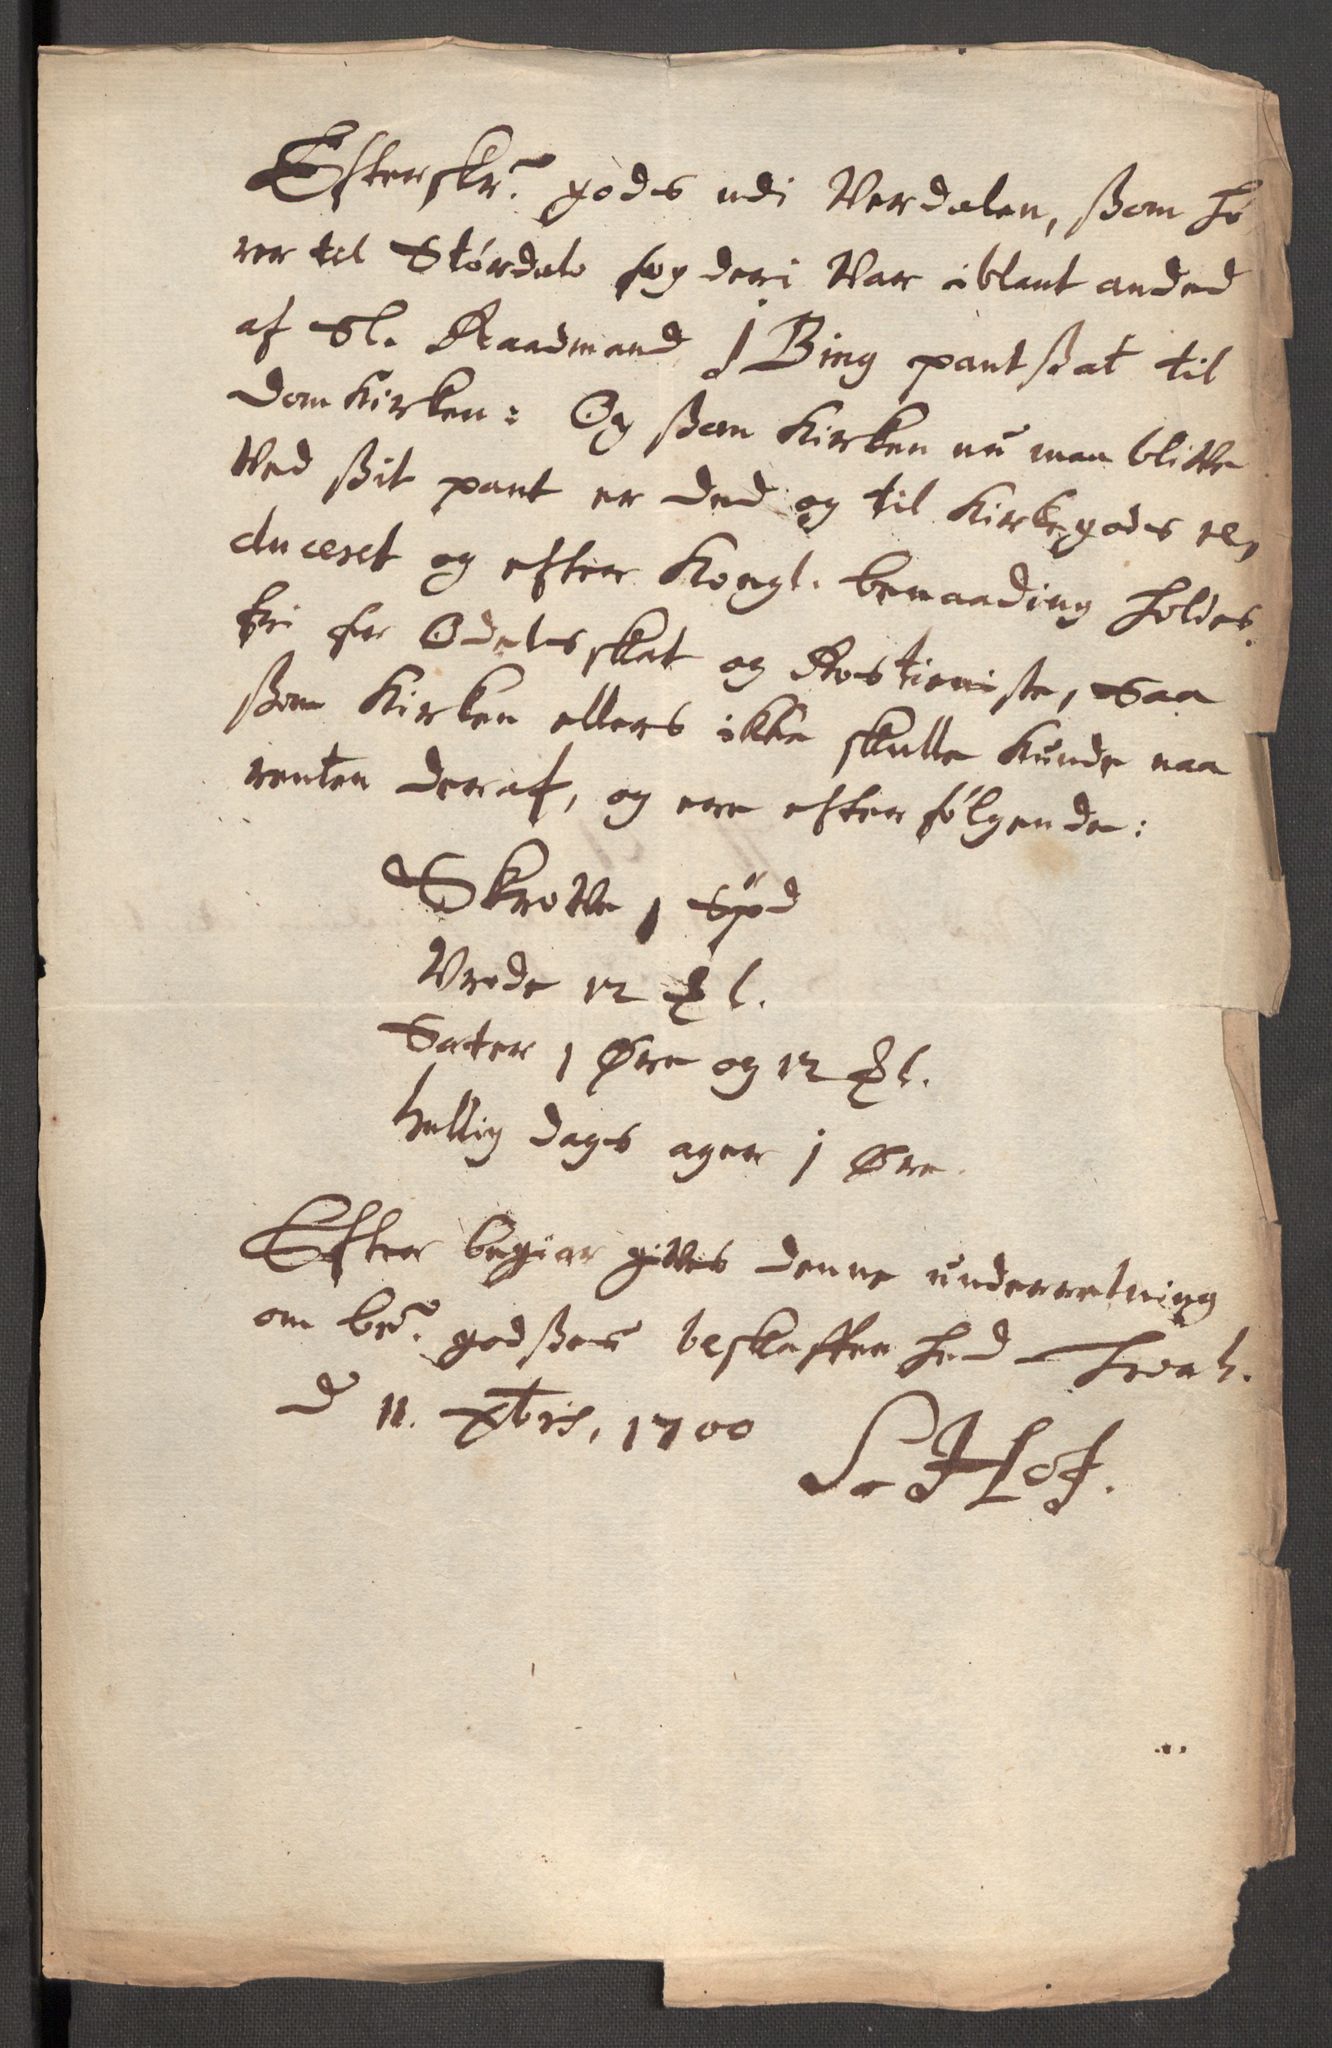 Efterskr. gods udi Werdalen, ßom hø
rer til Størdals fogderi War iblant anded
af Sl. Raadmand J Bing pantßat til
Domkirken: Og ßom Kirken nu maa blifve
Ved ßit pant er ded og til Kirkegods re,
duceret og efter Kongl. benaading holdes
fri for Odelsskat og Rostieniste, Saa
ßom Kirken ellers ikke skulle Kunde naa
renten deraf, og ere efterfølgende:
Skrowe 1 Spd
Vrede 12 ℔ l.
Sater 1 Øre og 12 ℔ l.
hellig dags ager j Øre.
Efter begiar gives denne underretning
om be. godßes beskaffenhed Troah.
d 11. Xbris, 1700
S. J Hof.